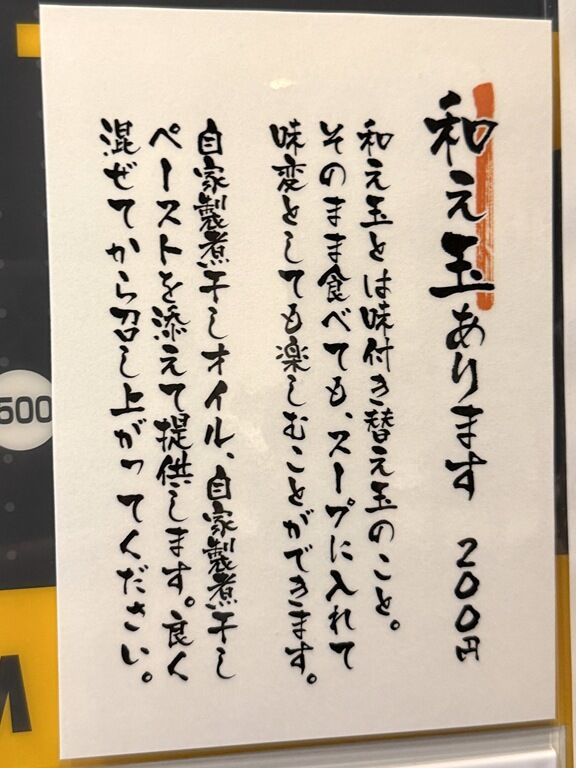 和え玉あります 200円
和え玉とは味付き替え玉のこと。
そのまま食べても、スープに入れて
味変としても楽しむことができます。
自家製煮干しオイル、自家製煮干し
ペーストを添えて提供します。良く
混ぜてから召し上がってください。
500
M